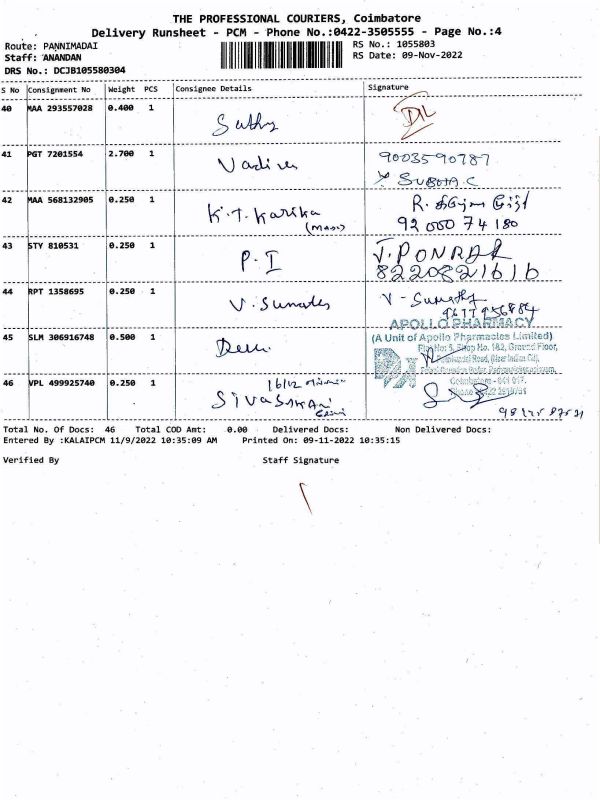 THE PROFESSIONAL COURIERS, Coimbatore
Delivery Runsheet - PCM - Phone No.:0422-3505555 - Page No.:4
Route: PANNIMADAI
RS No.: 1055803
Staff: ANANDAN
RS Date: 09-Nov-2022
DRS No.: DCJB105580304
S No Consignment No Weight PCS Consignee Details Signature
40 MAA 293557028 0.400 1 Sathy DL
41 PGT 7201554 2.700 1 Vadivel 9003590787
SUBHA.C
42 MAA 568132905 0.250 1 K.T. Karika R.
(MAAS) 92 000 74 180
43 STY 810531 0.250 1 P.I J.PONRAR
8220821616
44 RPT 1358695 0.250 1 V.Sumathy V-Sumathy
45 SLM 306916748 0.500 1
APOLLO PHARMACY
(A Unit of Apollo Pharmacies Limited)
Shop No. 182, Ground Floor,
Coimbatore - 641 017.
46 VPL 499925740 0.250 1 16/12
Total No. Of Docs: 46 Total COD Amt: 0.00 Delivered Docs: Non Delivered Docs:
Entered By :KALAIPCM 11/9/2022 10:35:09 AM Printed On: 09-11-2022 10:35:15
Verified By Staff Signature